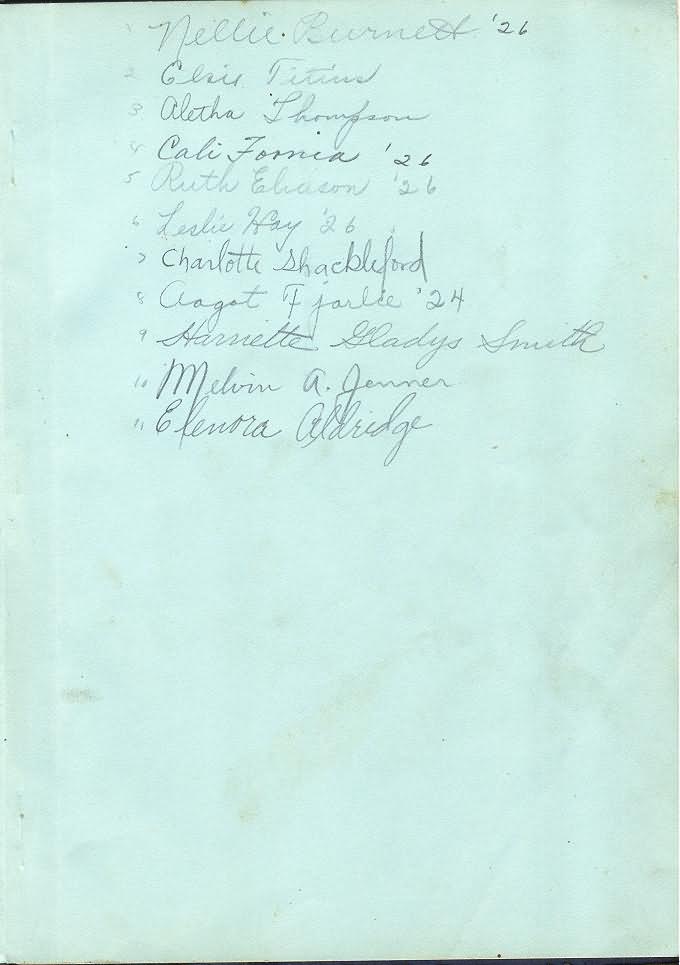 1 Nellie Burnett '26
2 Elsie Titius
3 Aletha Thompson
4 Cali Fornia '26
5 Ruth Eliason '26
6 Leslie Way '26
7 Charlotte Shackleford
8 Aagot Fjarlie '24
9 Harriette Gladys Smith
10 Melvin A. Jenner
11 Elenora Aldridge